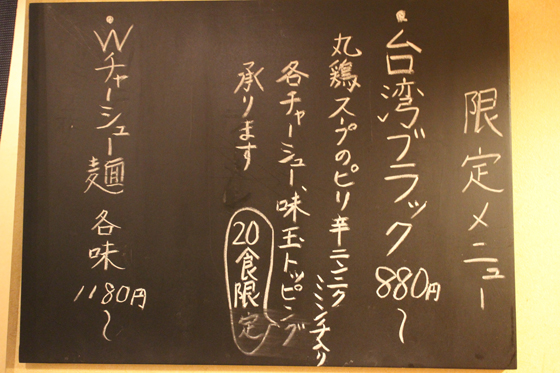 限定メニュー
・台湾ブラック 880円〜
丸鶏スープのピリ辛ニンニクミンチ入り
各チャーシュー、味玉トッピング
承ります
20食限定
・Wチャーシュー麺 各味 1180円〜